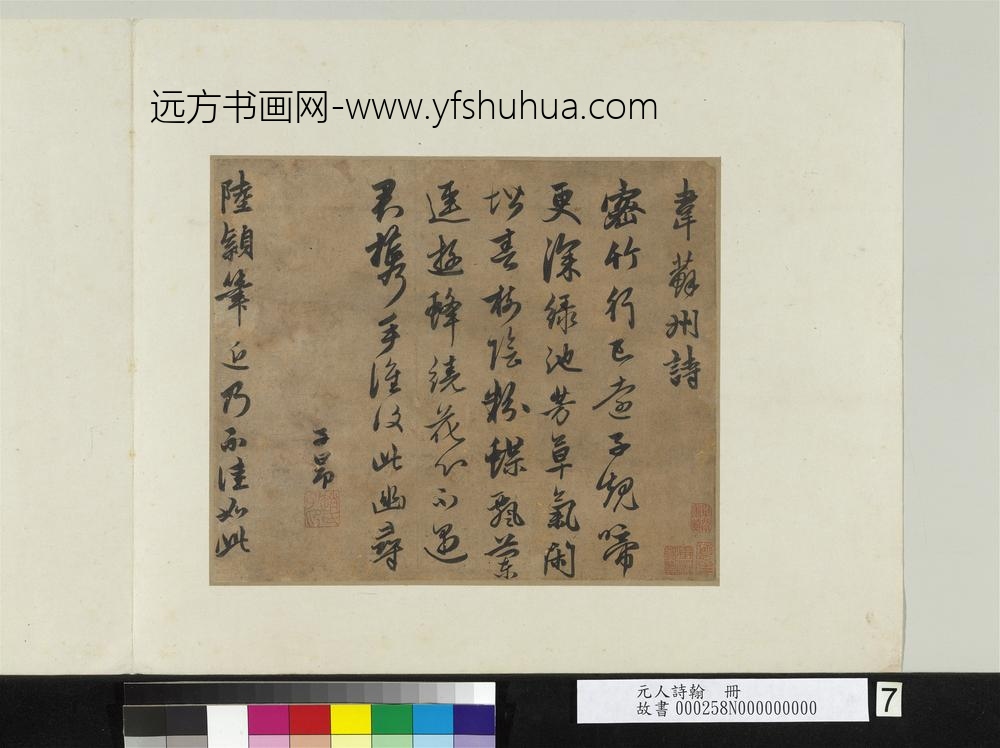 远方书画网-www.yfshuhua.com
韋蘇州詩
密竹行已遠子規啼
更深緑池芳草氣閑
堦春樹陰粉蝶飄蘭
逕遊蜂繞花心不遇
君攜手誰復此幽尋
子昂
陸穎筆近乃不佳如此
元人詩翰 冊
故書 000258N000000000
7